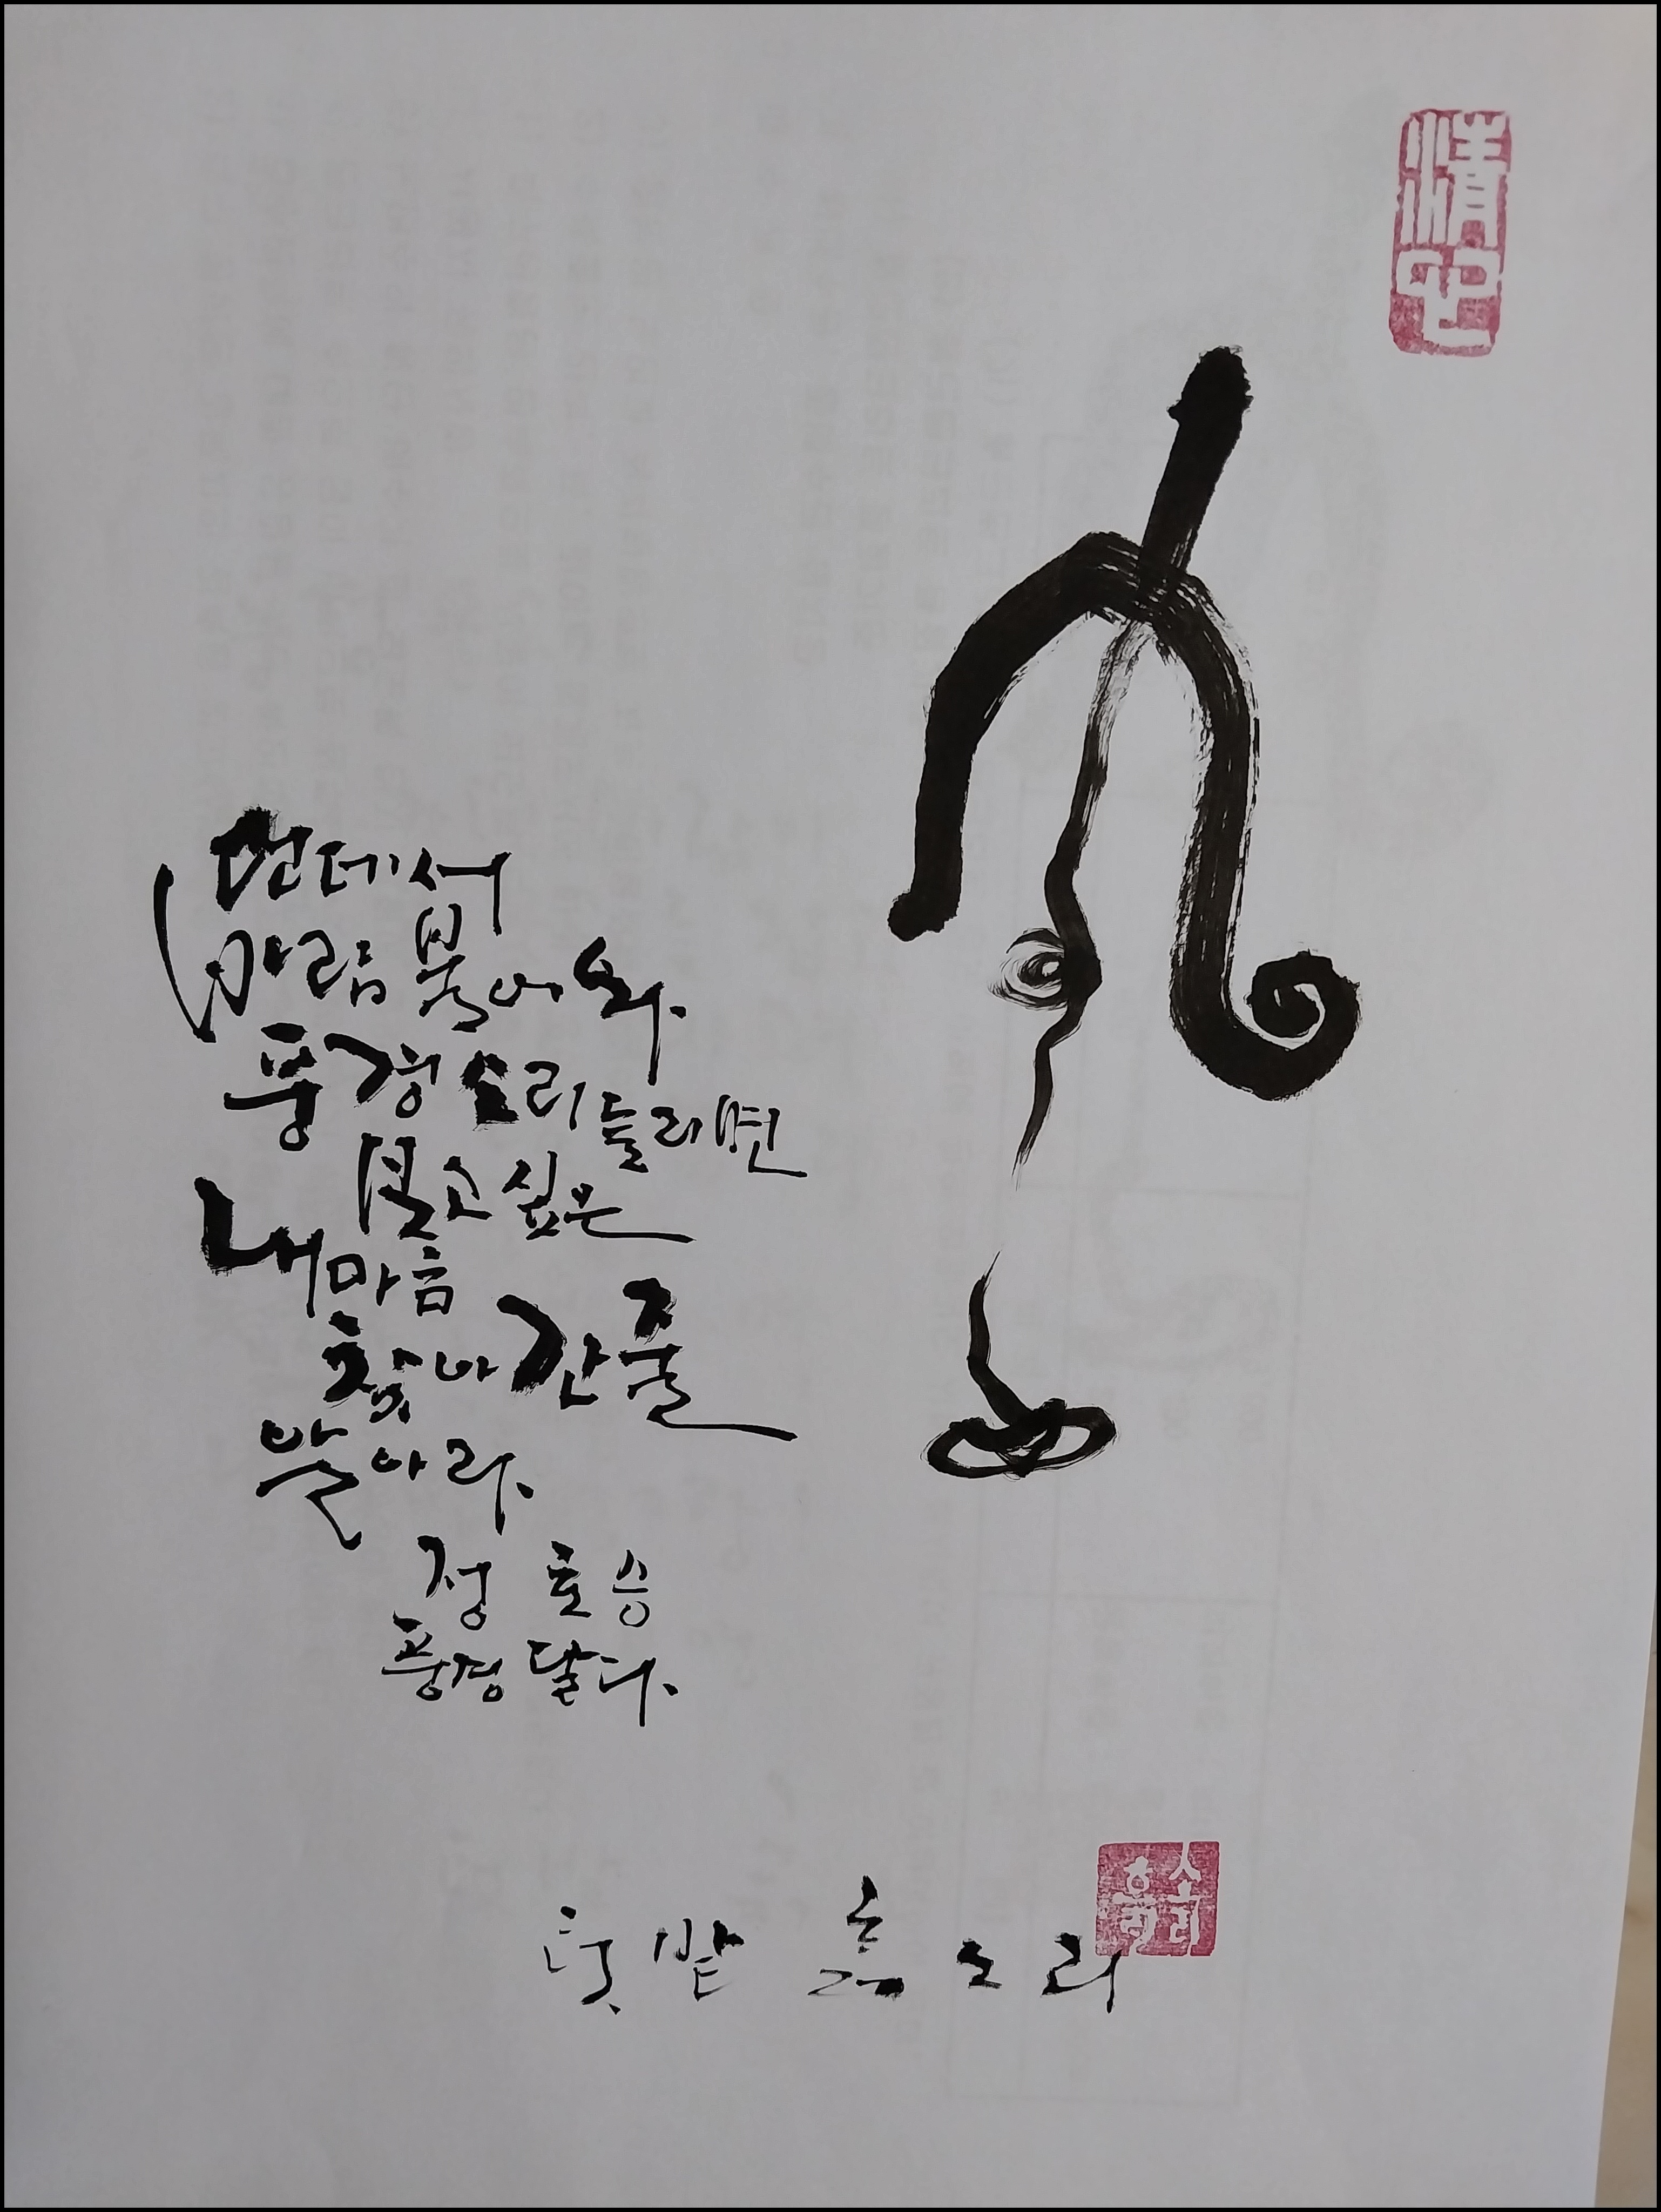 淸心
먼데서
바람 불어와
풍경소리 들리면
보고싶은
내마음
찾아 간줄
알아라.
정 호승
풍경 달다.
텃밭 흙 소리
소리